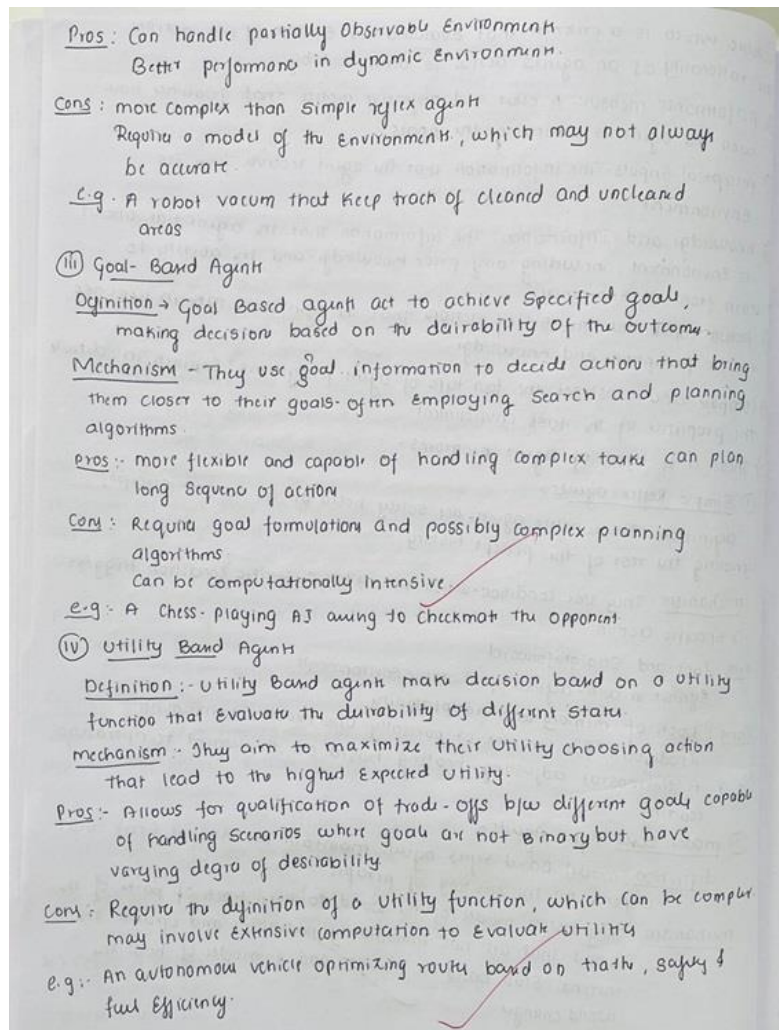 Pros : Can handle partially Observable Environments
Better performance in dynamic Environment.
Cons : more complex than simple reflex agents
Requires a model of the Environments, which may not always
be accurate.
e.g. A robot vacum that keep track of cleaned and uncleaned
areas
(iii) Goal-Based Agents
Definition → Goal Based agents act to achieve specified goals,
making decision based on the desirability of the outcomes.
Mechanism - They use goal information to decide action that bring
them closer to their goals. often Employing search and planning
algorithms.
Pros :- more flexible and capable of handling complex tasks can plan
long Sequence of action
Cons : Requires goal formulation and possibly complex planning
algorithms
Can be computationally Intensive.
e.g :- A Chess-Playing AI aiming to checkmate the opponent
(iv) Utility Based Agents
Definition :- Utility Based agents make decision based on a utility
function that Evaluate the desirability of different states.
mechanism :- They aim to maximize their utility choosing action
that lead to the highest Expected utility.
Pros :- Allows for qualification of trade-offs b/w different goals capable
of handling scenarios where goals are not Binary but have
varying degree of desirability
Cons : Require the definition of a utility function, which can be complex
may involve Extensive computation to Evaluate utility
e.g :- An autonomous vehicle optimizing routes based on , safety &
fuel Efficiency.